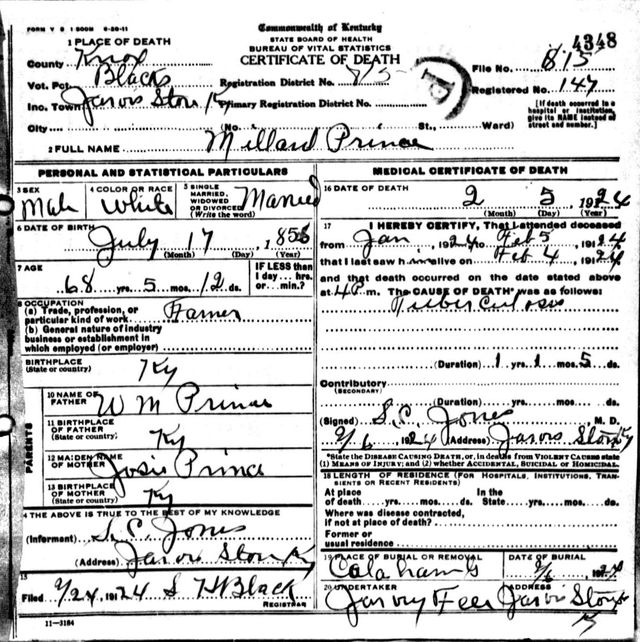 FORM V S 1 500M 6-20-11
Commonwealth of Kentucky
STATE BOARD OF HEALTH
BUREAU OF VITAL STATISTICS
CERTIFICATE OF DEATH
4348
1 PLACE OF DEATH
County Knox
Vot. Pct. Blacks
Registration District No. 815
File No. 815
Inc. Town Jarvis Store Ky
Primary Registration District No.
Registered No. 147
City (No. St., Ward)
[If death occurred in a hospital or institution, give its NAME instead of street and number.]
2 FULL NAME Millard Prince
PERSONAL AND STATISTICAL PARTICULARS
3 SEX Male
4 COLOR OR RACE White
5 SINGLE, MARRIED, WIDOWED OR DIVORCED (Write the word) Married
6 DATE OF BIRTH July 17, 1855
(Month) (Day) (Year)
7 AGE 68 yrs. 5 mos. 12 ds.
IF LESS than 1 day ... hrs. or ... min.?
8 OCCUPATION
(a) Trade, profession, or particular kind of work Farmer
(b) General nature of industry business or establishment in which employed (or employer)
BIRTHPLACE
(State or country) Ky
PARENTS
10 NAME OF FATHER W M Prince
11 BIRTHPLACE OF FATHER
(State or country) Ky
12 MAIDEN NAME OF MOTHER Josie Prince
13 BIRTHPLACE OF MOTHER
(State or country) Ky
4 THE ABOVE IS TRUE TO THE BEST OF MY KNOWLEDGE
(Informant) S.C. Jones
(Address) Jarvis Store Ky
15
Filed 2/24, 1924 S H Black
REGISTRAR
11-3184
MEDICAL CERTIFICATE OF DEATH
16 DATE OF DEATH
2 5, 1924
(Month) (Day) (Year)
17 I HEREBY CERTIFY, That I attended deceased
from Jan, 1924 to Feb 5, 1924
that I last saw him alive on Feb 4, 1924
and that death occurred on the date stated above
at 4 P. m. The CAUSE OF DEATH* was as follows:
Tuberculosis
(Duration) 1 yrs. 1 mos. 5 ds.
Contributory
(SECONDARY)
(Duration) yrs. mos. ds.
(Signed) S.C. Jones, M. D.
2/6, 1924 (Address) Jarvis Store Ky
*State the DISEASE CAUSING DEATH, or, in deaths from VIOLENT CAUSES state (1) MEANS OF INJURY; and (2) whether ACCIDENTAL, SUICIDAL OR HOMICIDAL.
18 LENGTH OF RESIDENCE (FOR HOSPITALS, INSTITUTIONS, TRANSIENTS OR RECENT RESIDENTS)
At place of death yrs. mos. ds.
In the State yrs. mos. ds.
Where was disease contracted, if not at place of death?
Former or usual residence
19 PLACE OF BURIAL OR REMOVAL
DATE OF BURIAL
2/6, 1924
20 UNDERTAKER
ADDRESS
Jarvis Store Ky